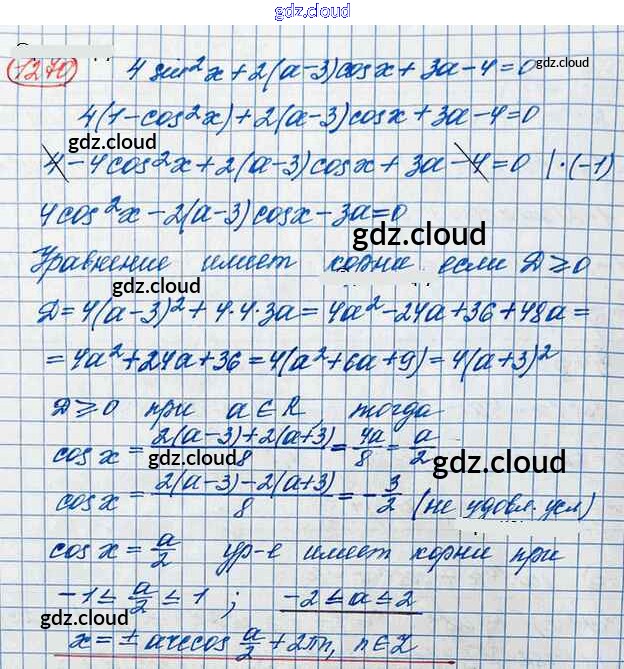 gdz.cloud
1270) 4 sin²x + 2(a-3)cosx + 3a-4=0 gdz.cloud
4(1-cos²x)+2(a-3)cosx+3a-4=0
gdz.cloud gdz.cloud
4-4cos²x+2(a-3)cosx+3a-4=0 |·(-1)
4cos²x-2(a-3)cosx-3a=0
gdz.cloud
Уравнение имеет корни если D≥0
gdz.cloud
D=4(a-3)²+4·4·3a=4a²-24a+36+48a=
=4a²+24a+36=4(a²+6a+9)=4(a+3)²
D≥0 при a∈R, тогда
cos x = (2(a-3)+2(a+3))/8 = 4a/8 = a/2
gdz.cloud gdz.cloud
cos x = (2(a-3)-2(a+3))/8 = -3/2 (не удовл. усл)
gdz.cloud gdz.cloud
cos x = a/2 ур-е имеет корни при
-1≤a/2≤1; -2≤a≤2
gdz.cloud
x=±arccos a/2+2πn, n∈Z
gdz.cloud